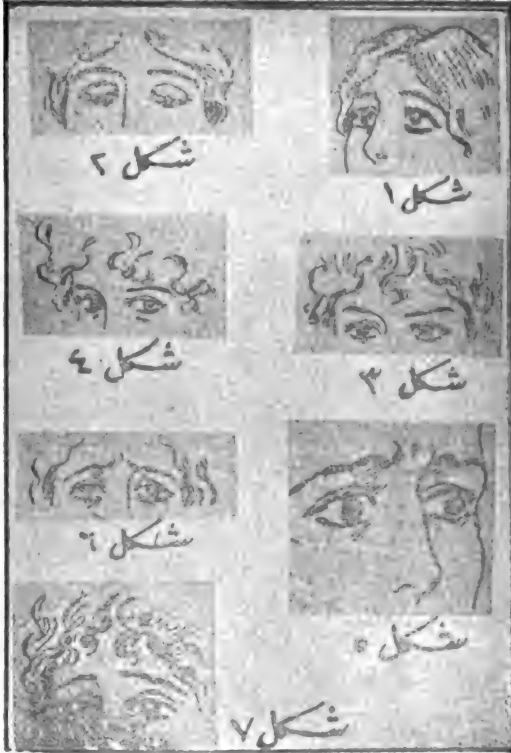 شكل ١
شكل ٢
شكل ٣
شكل ٤
شكل ٥
شكل ٦
شكل ٧